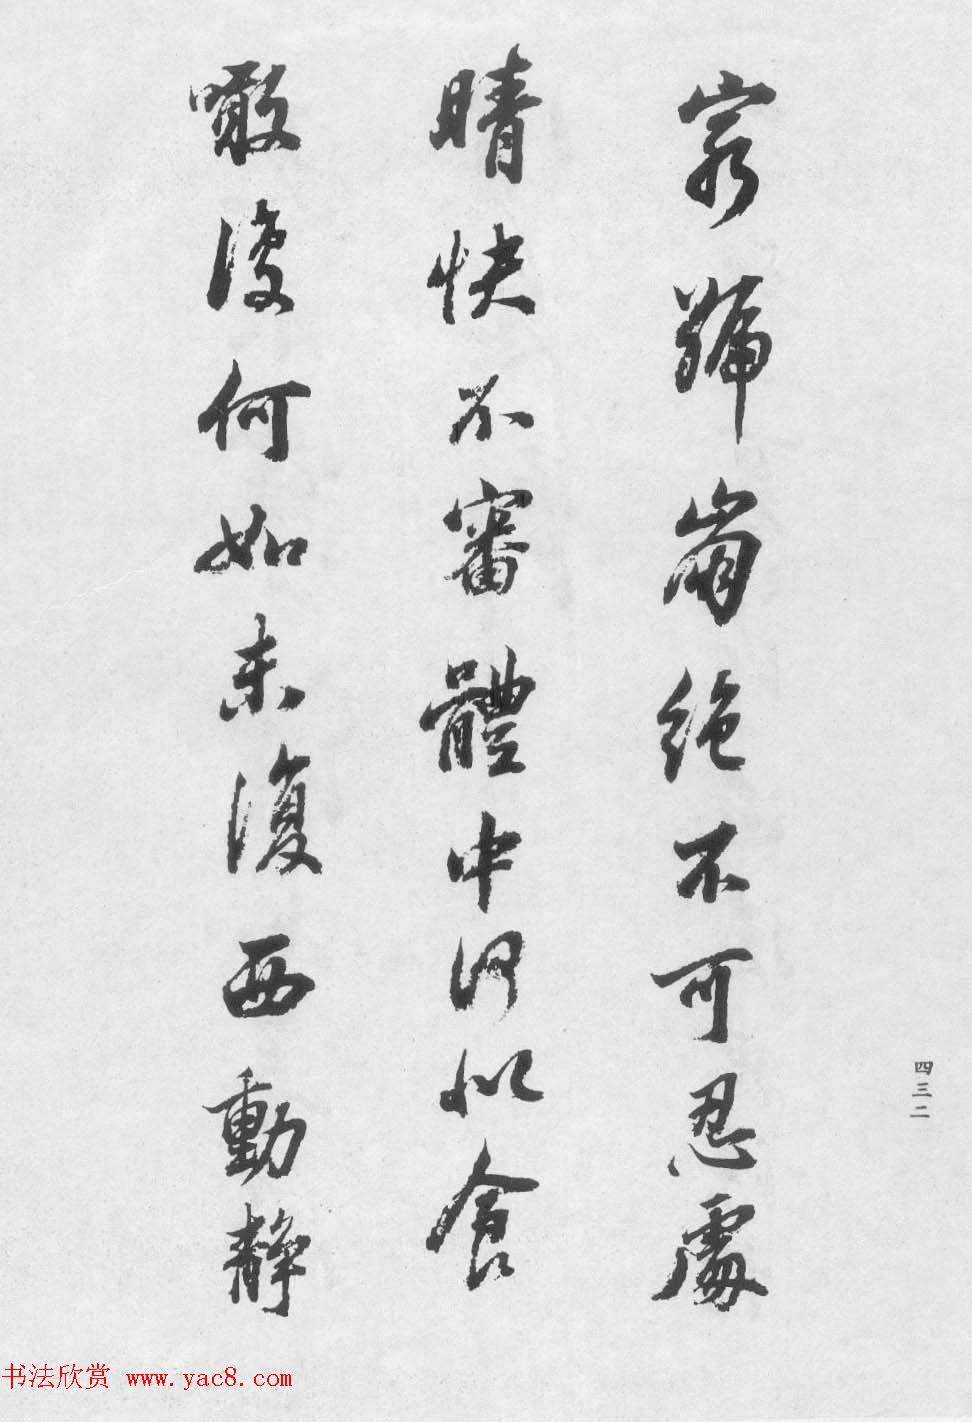 號崩絕不可忍處
晴快不審體中何似食
噉復何如未復西動靜
四三二
书法欣赏 www.yac8.com